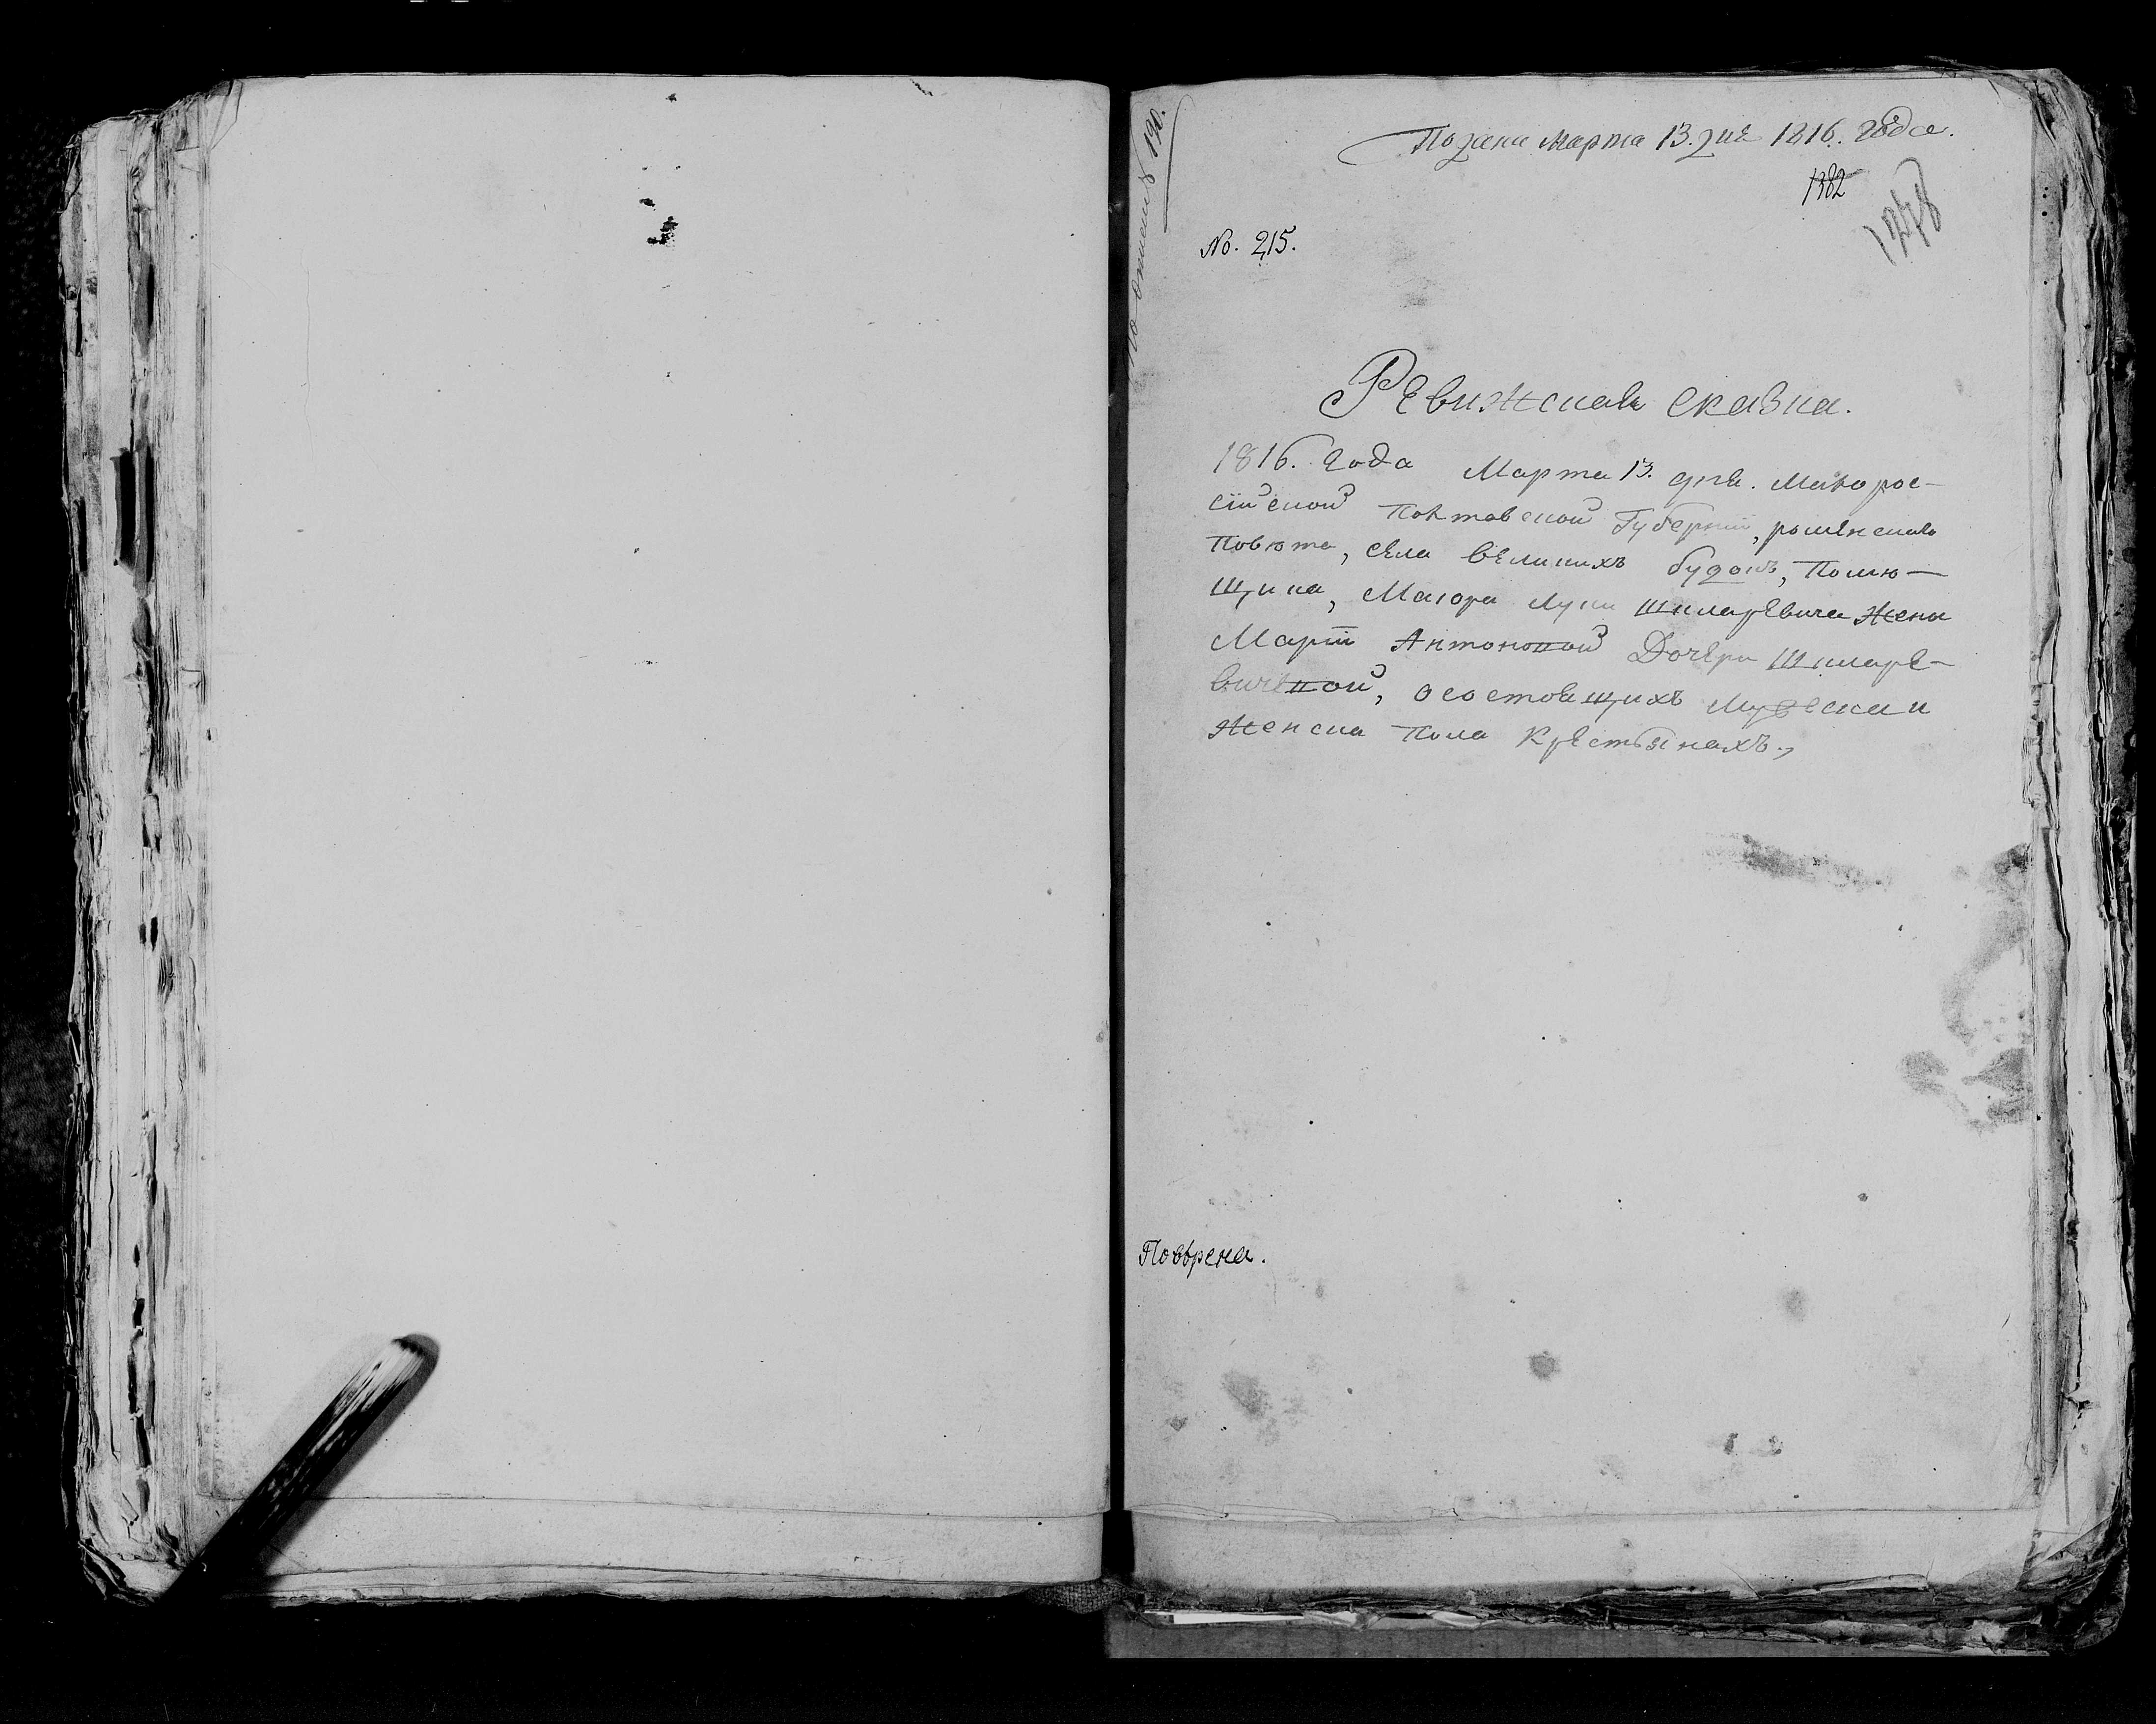 Подана Марта 13. дня 1816. года.
1382
No. 215.
По описи 190.
Ревижская сказка.
1816. года Марта 13. дня. Малорос-
сійской Полтавской Губерніи, роменскаго
Повѣта, села великихъ будокъ, Помѣ-
щика, Маіора Луки Шкларевича Жены
Маріи Антоновой Дочери Шкларе-
вичевой, о состоящихъ Мужеска и
Женска Пола Крестьянахъ.,
Повѣрена.